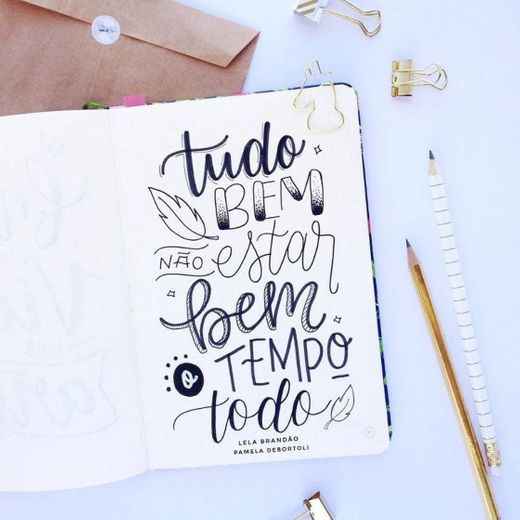 tudo
BEM
NÃO estar
bem
o TEMPO
todo
LELA BRANDÃO
PAMELA DEBORTOLI